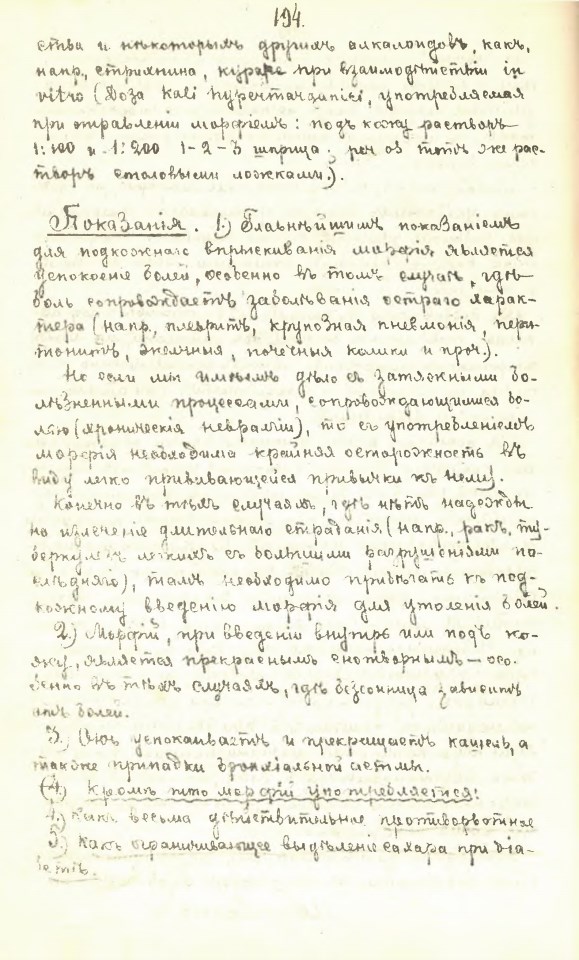 194.
ства и нѣкоторымъ другимъ алкалоидовъ, какъ,
напр., стрихнина, кураре при взаимодѣйствіи in
vitro (Доза Kali hypermanganici, употребляемая
при отравленіи морфіемъ: подъ кожу растворъ
1:100 и 1:200 1-2-3 шприца; per os тотъ же рас-
творъ столовыми ложками.).
Показанія. 1.) Главнѣйшимъ показаніемъ
для подкожнаго впрыскиванія морфія является
успокоеніе болей, особенно въ томъ случаѣ, гдѣ
боль сопровождаетъ заболѣванія остраго харак-
тера (напр., плевритъ, крупозная пневмонія, пери-
тонитъ, желчныя, почечныя колики и проч.).
Но если мы имѣемъ дѣло съ затяжными бо-
лѣзненными процессами, сопровождающимися бо-
лью (хроническія невралгіи), то съ употребленіемъ
морфія необходима крайняя осторожность въ
виду легко прививающейся привычки къ нему.
Конечно въ тѣхъ случаяхъ, гдѣ нѣтъ надежды
на излеченіе длительнаго страданія (напр., ракъ, ту-
беркулезъ легкихъ съ большими разрушеніями по-
слѣдняго), тамъ необходимо прибѣгать къ под-
кожному введенію морфія для утоленія болей.
2.) Морфій, при введеніи внутрь или подъ ко-
жу, является прекраснымъ снотворнымъ — осо-
бенно въ тѣхъ случаяхъ, гдѣ безсонница зависитъ
отъ болей.
3.) Онъ успокаиваетъ и прекращаетъ кашель, а
также припадки бронхіальной астмы.
(4.) Кромѣ того морфій употребляется:
4.) Какъ весьма дѣйствительное противорвотное
5.) Какъ ограничивающее выдѣленіе сахара при діа-
бетѣ.